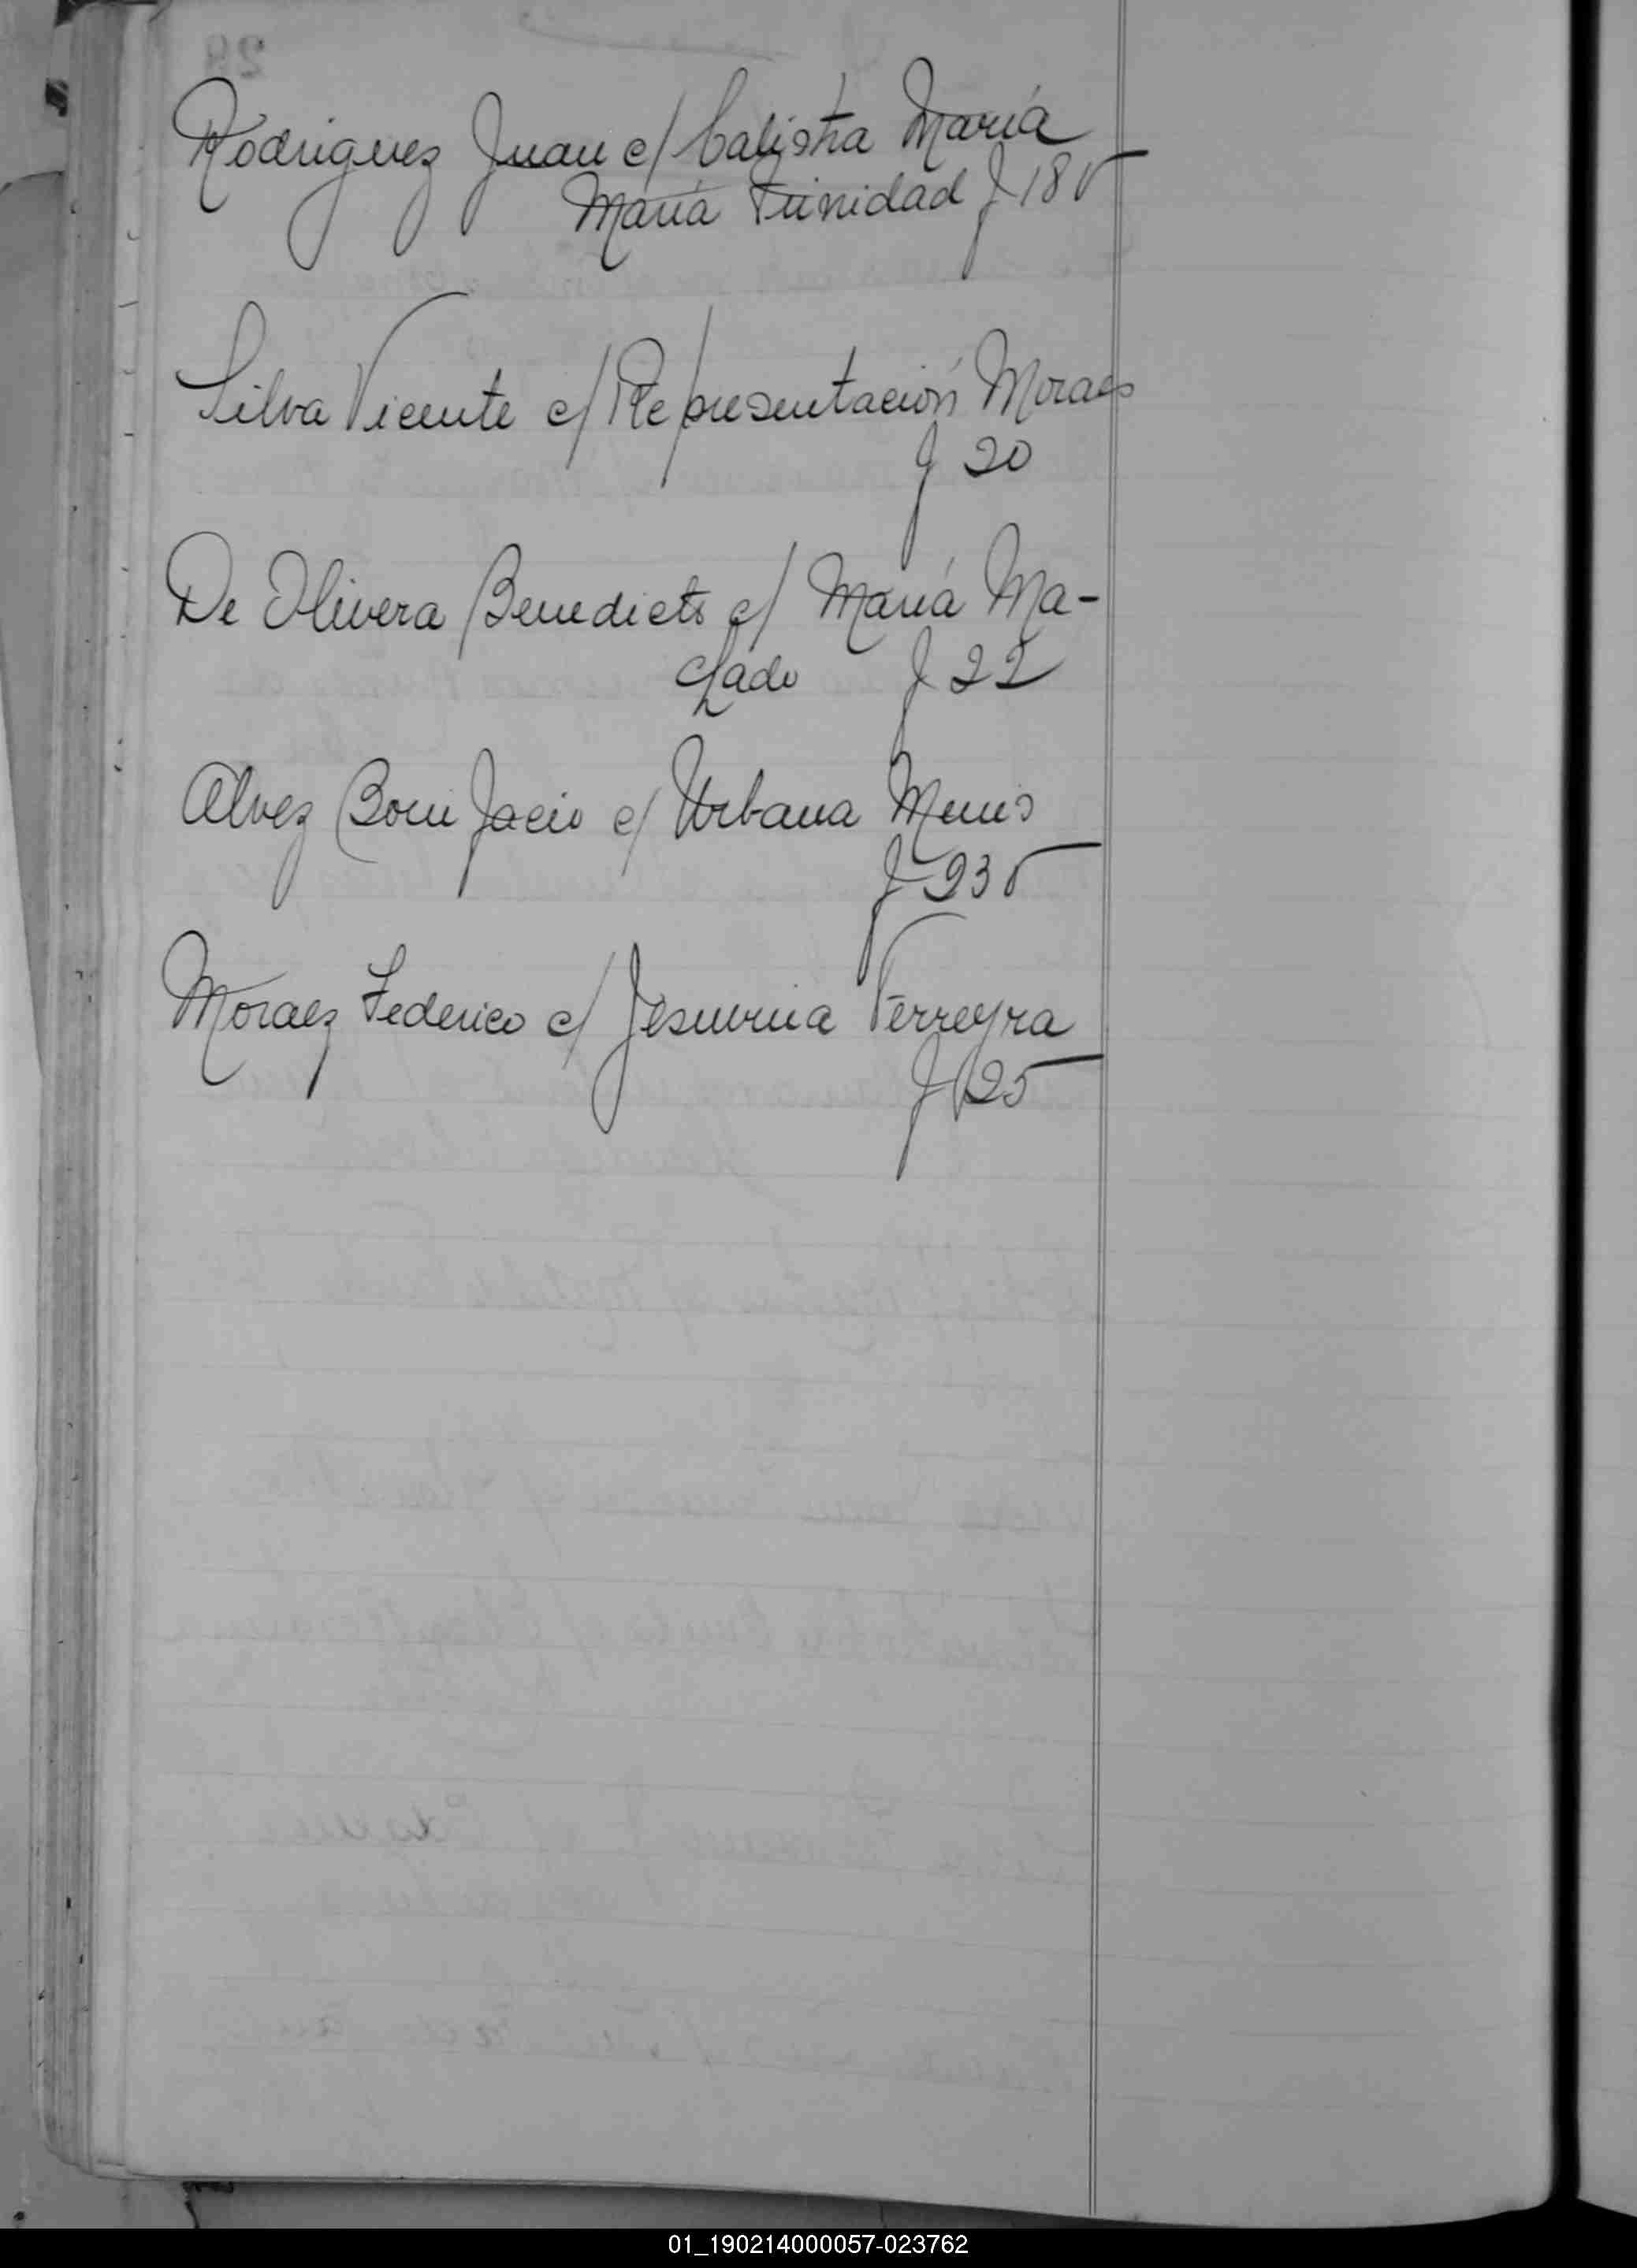 Rodriguez Juan c/ Calista María
María Trinidad f 18 v
Silva Vicente c/ Representación Moraes
f 20
De Olivera Benedicto c/ María Ma-
chado f 22
Alvez Bonifacio c/ Urbana Munis
f 23 v
Moraez Federico c/ Jesuvina Ferreyra
f 25
01_190214000057-023762